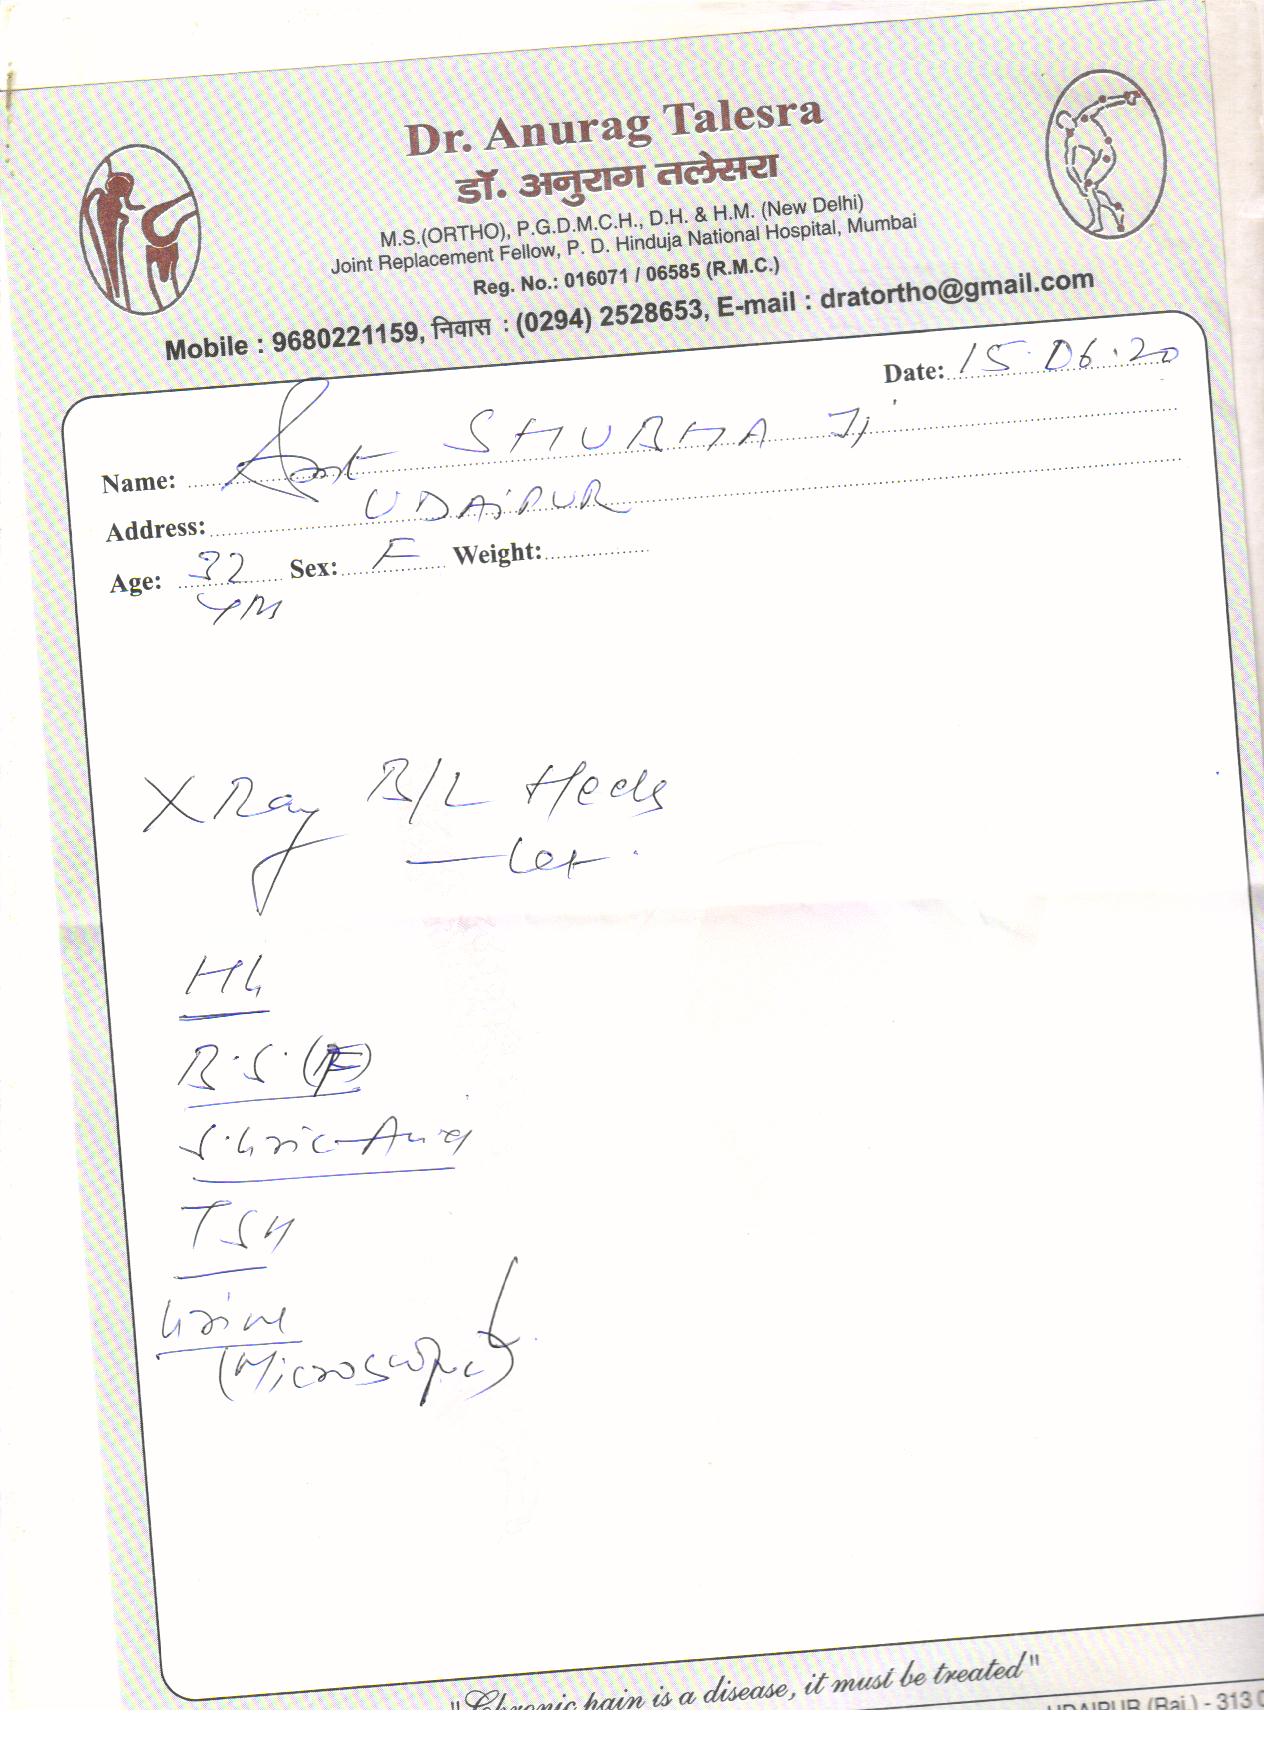 Dr. Anurag Talesra
डॉ. अनुराग तलेसरा
M.S.(ORTHO), P.G.D.M.C.H., D.H. & H.M. (New Delhi)
Joint Replacement Fellow, P. D. Hinduja National Hospital, Mumbai
Reg. No.: 016071 / 06585 (R.M.C.)
Mobile : 9680221159, निवास : (0294) 2528653, E-mail : dratortho@gmail.com
Date: 15.06.20
Name: Smt SHUBHA Ji
Address: UDAiPUR
Age: 32 Sex: F Weight:
X Ray B/L Heels
Hb
B.S.(F)
S.Uric Acid
TSH
Urine
(Microscopic)
"Chronic pain is a disease, it must be treated"
UDAIPUR (Raj.) - 313 0